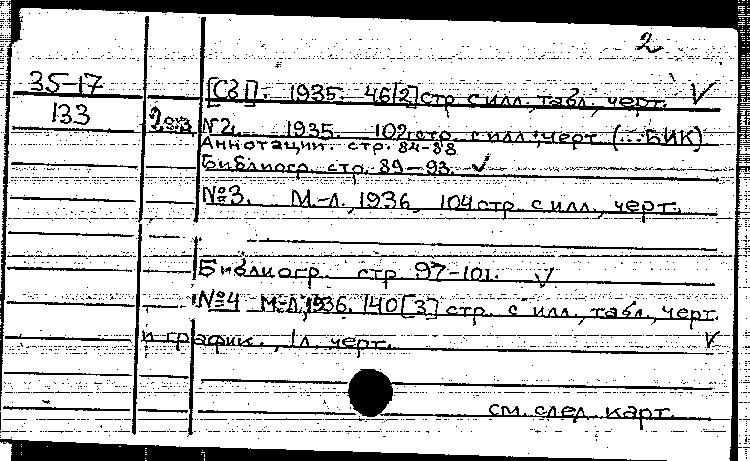 2
35-17
[Сб 1]. 1935. 46[2] стр с илл., табл., черт. V
133
2 экз. №2. 1935. 102 стр. с илл., черт. (...БИК)
Аннотации. стр. 84-88
Библиогр. стр. 89-93. V
№3. М-Л, 1936, 104 стр. с илл., черт.
Библиогр. стр 97-101. V
№4 М-Л, 1936. 140[3] стр. с илл., табл., черт.
и график., 1 л. черт. V
см. след. карт.